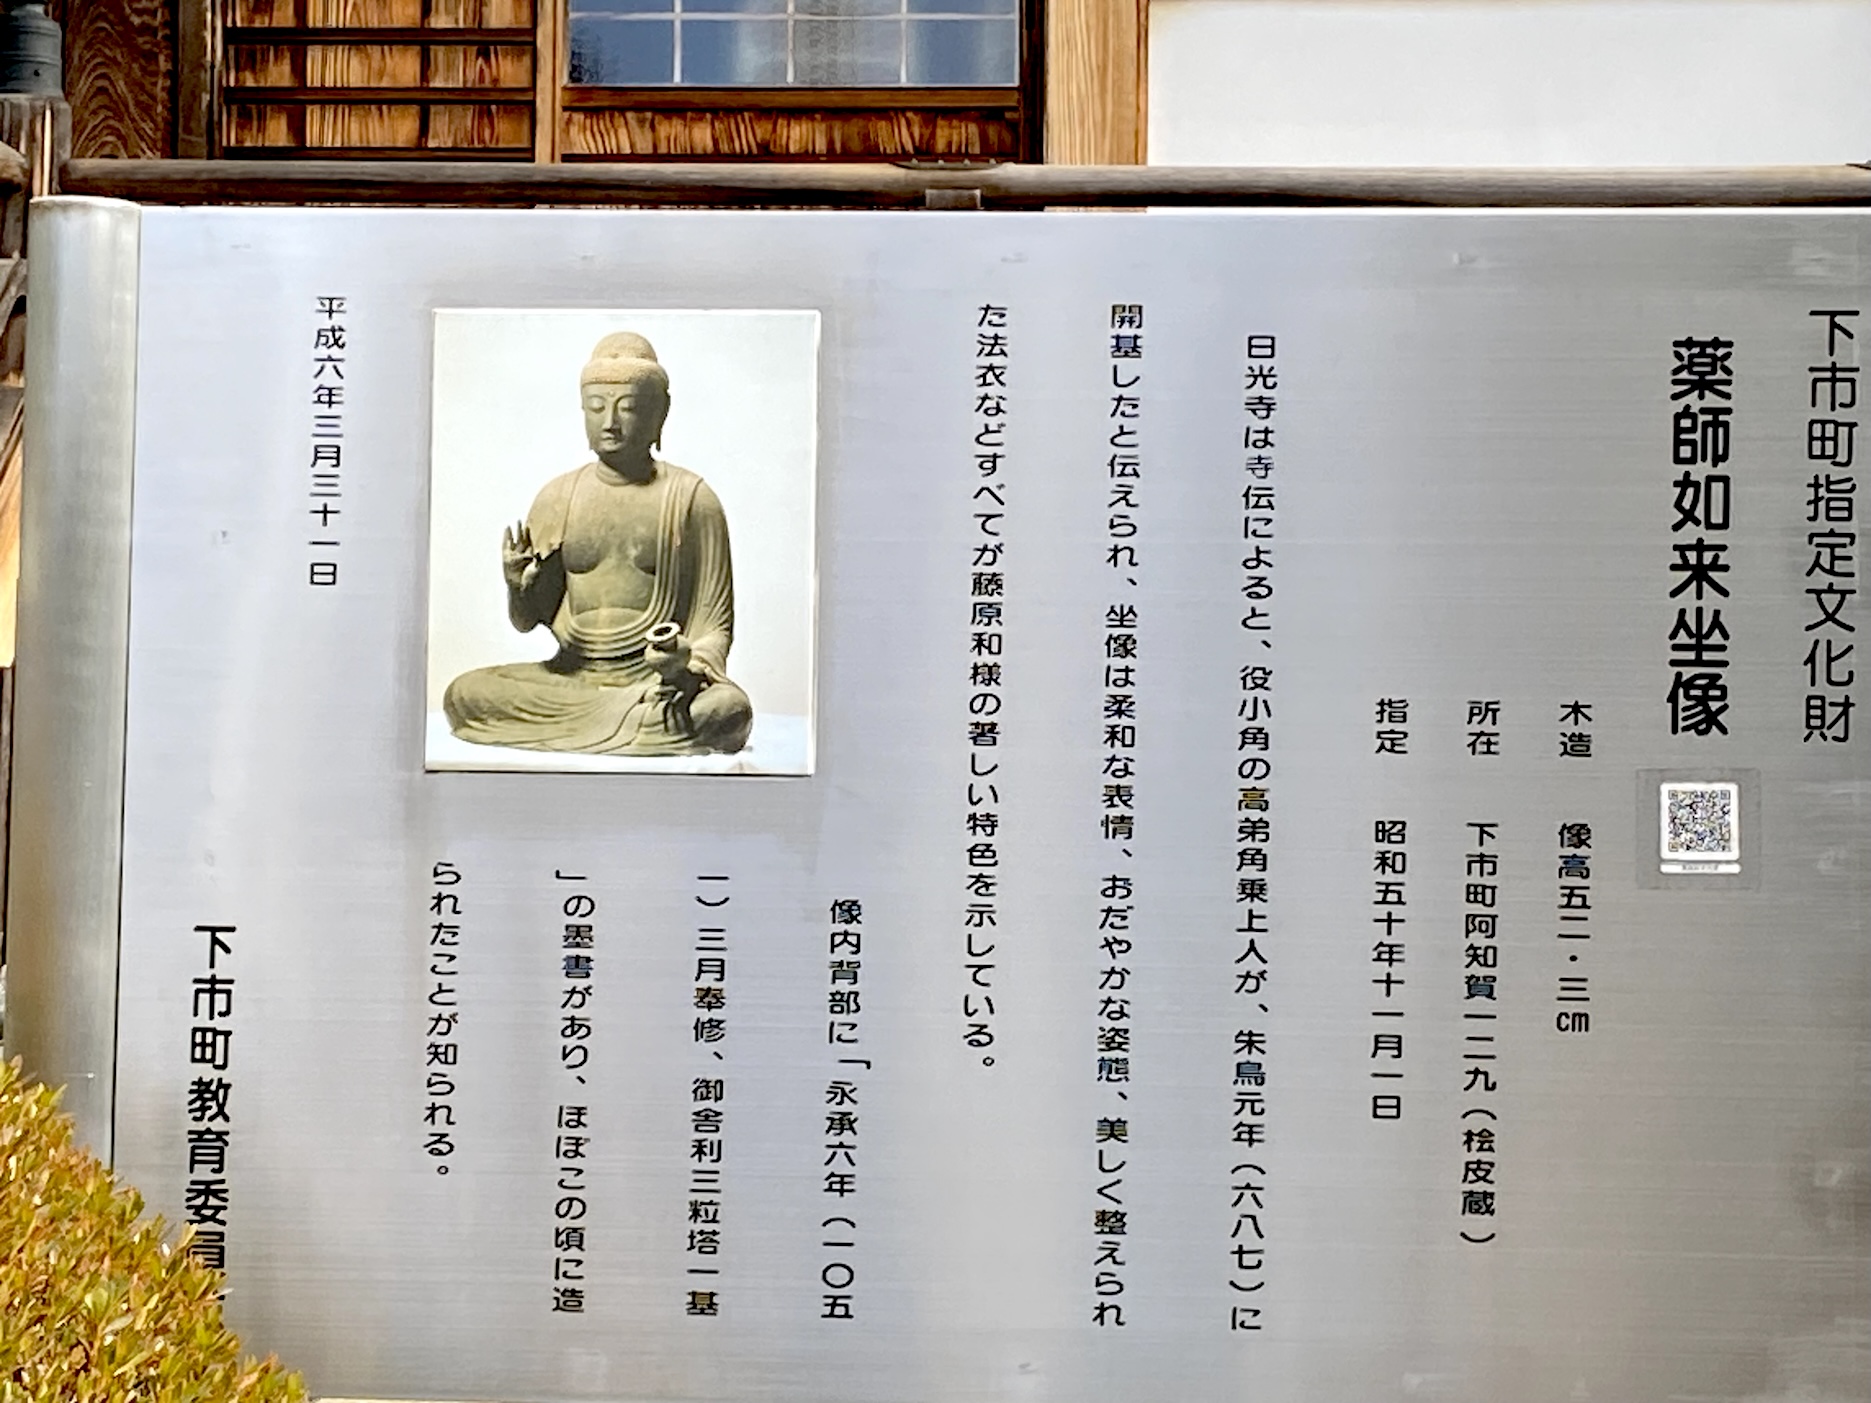 下市町指定文化財
薬師如来坐像
木造　像高五二・三㎝
所在　下市町阿知賀一二九（桧皮蔵）
指定　昭和五十年十一月一日
日光寺は寺伝によると、役小角の高弟角乗上人が、朱鳥元年（六八七）に
開基したと伝えられ、坐像は柔和な表情、おだやかな姿態、美しく整えられ
た法衣などすべてが藤原和様の著しい特色を示している。
像内背部に「永承六年（一〇五
一）三月奉修、御舎利三粒塔一基
」の墨書があり、ほぼこの頃に造
られたことが知られる。
平成六年三月三十一日
下市町教育委員